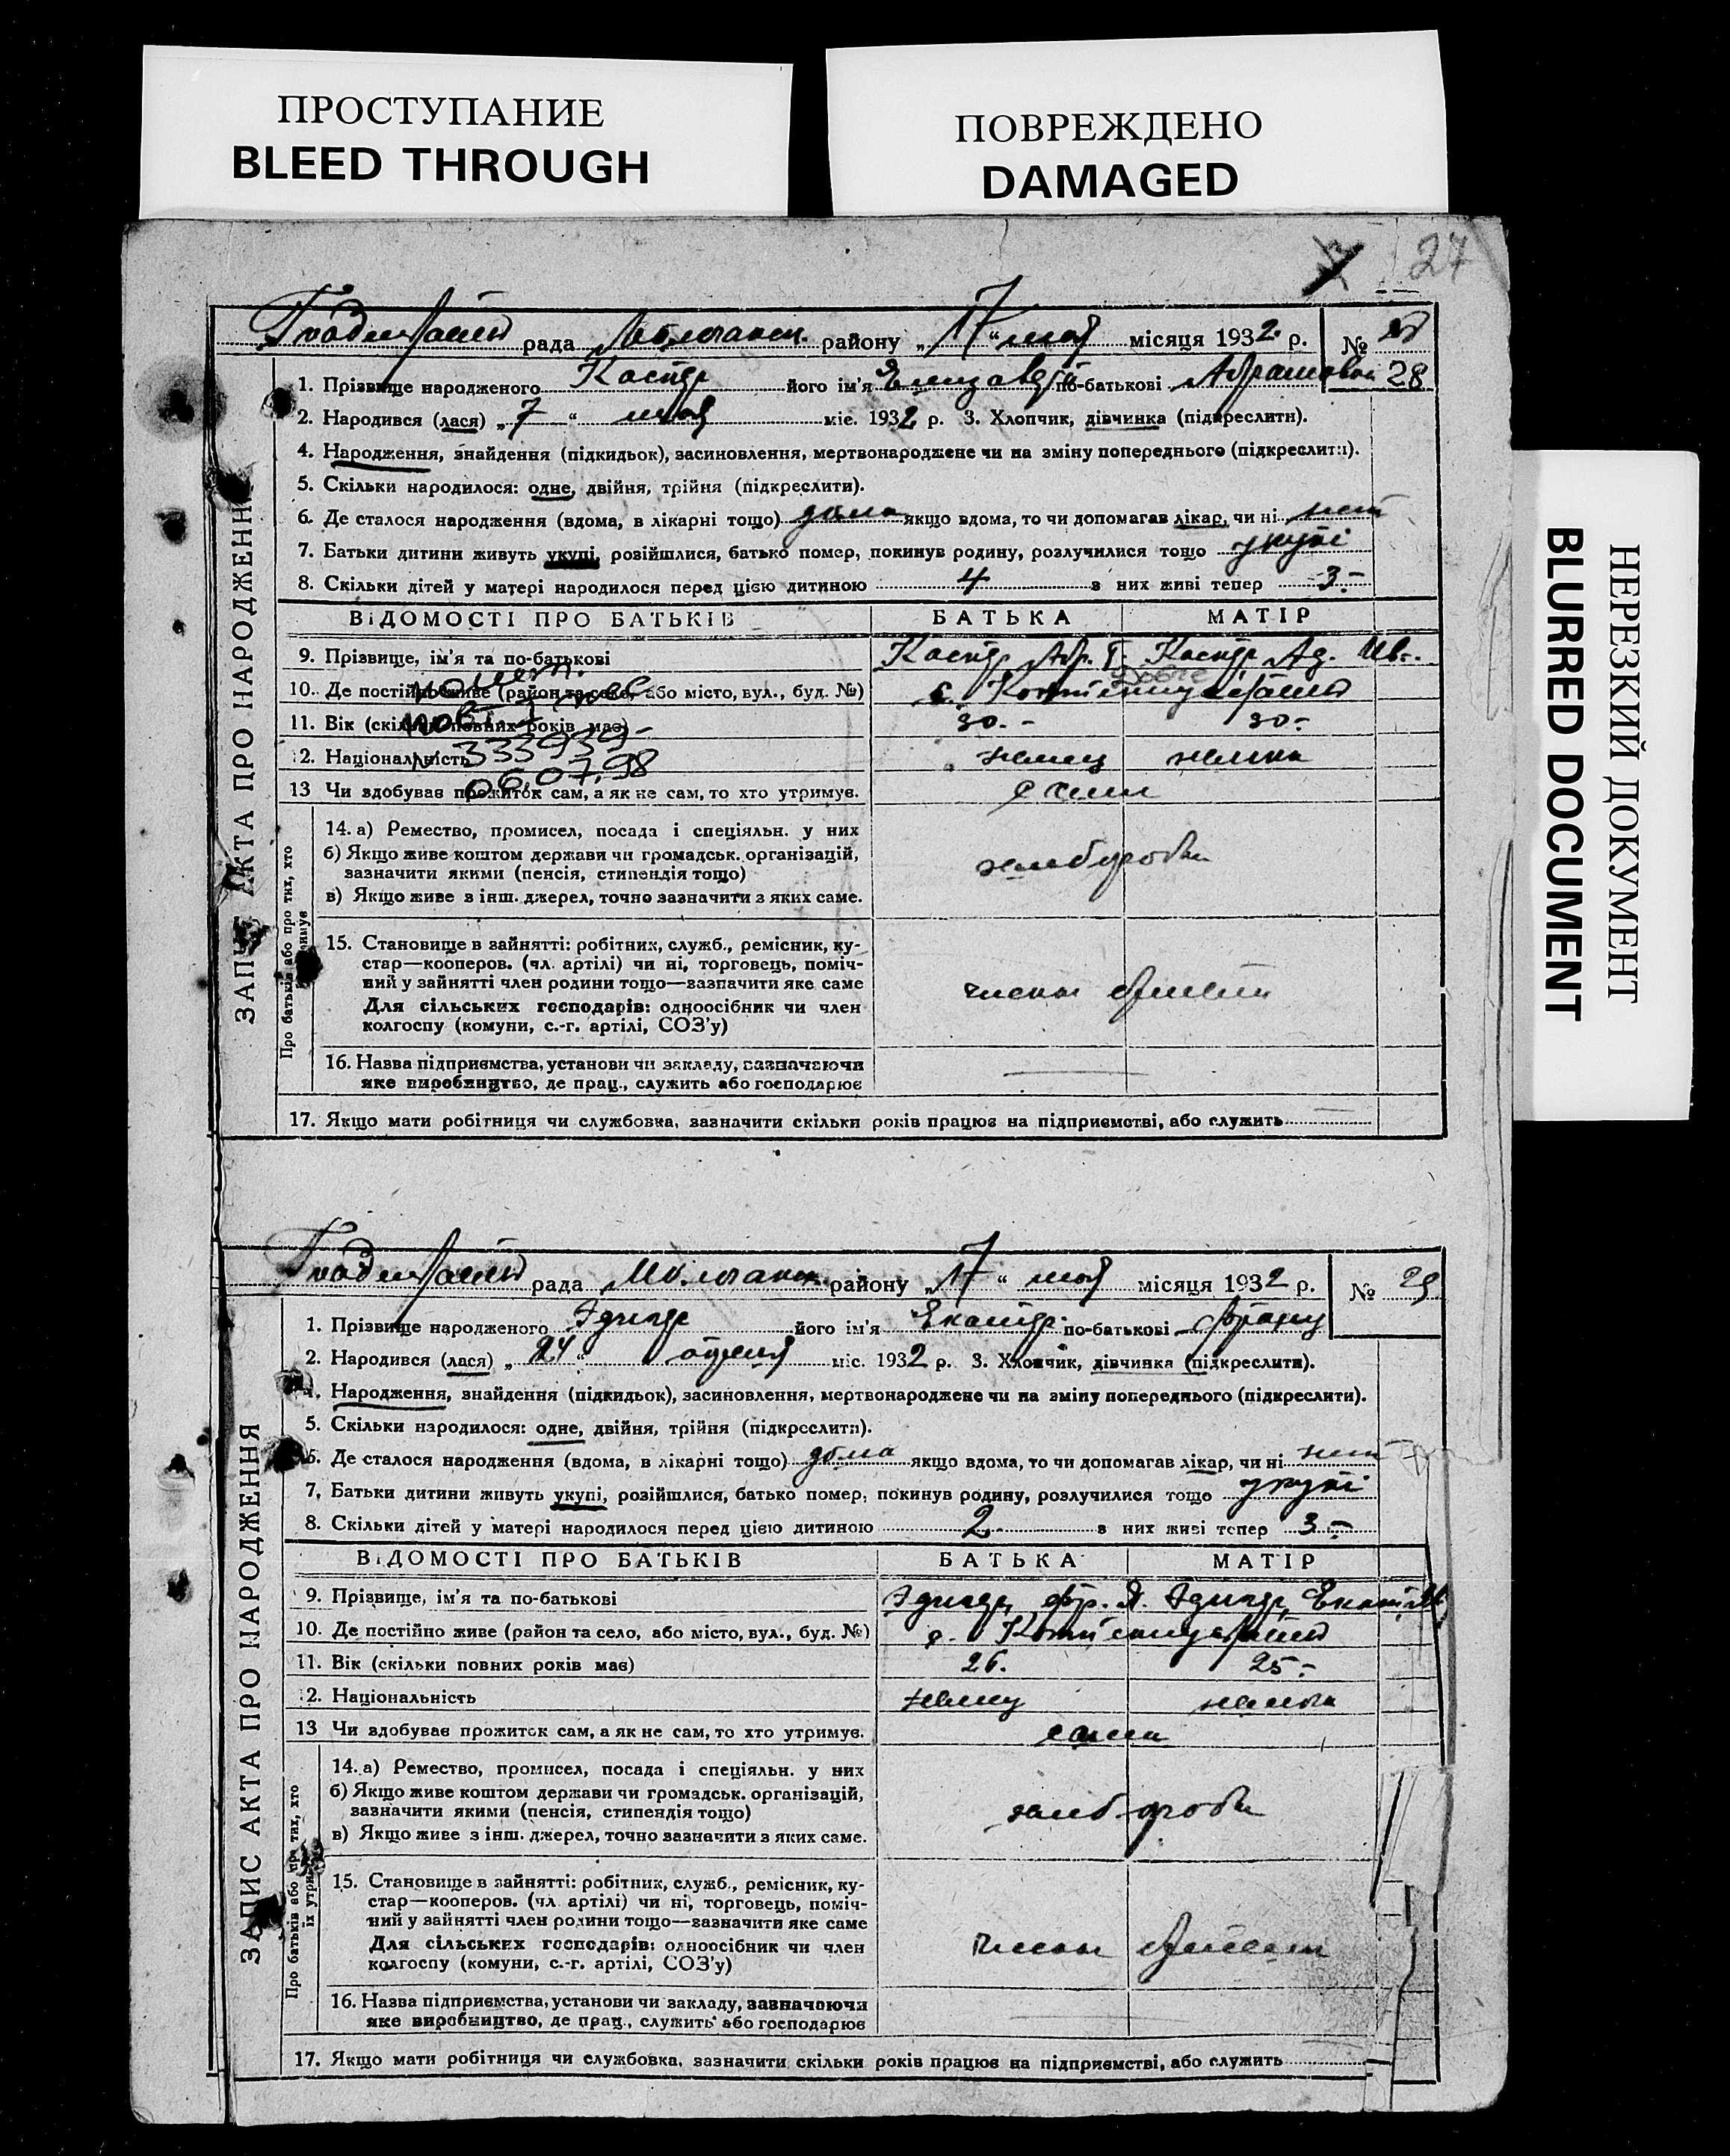 ПРОСТУПАНИЕ
BLEED THROUGH
ПОВРЕЖДЕНО
DAMAGED
НЕРЕЗКИЙ ДОКУМЕНТ
BLURRED DOCUMENT
27
рада району „17“ мая місяця 1932 р. №
28
1. Прізвище народженого його ім'я Елизавета по-батькові Абрамовна
2. Народився (лася) „7“ мая міс. 1932 р. 3. Хлопчик, дівчинка (підкреслити).
4. Народження, знайдення (підкидьок), засиновлення, мертвонароджене чи на зміну попереднього (підкреслити).
5. Скільки народилося: одне, двійня, трійня (підкреслити).
6. Де сталося народження (вдома, в лікарні тощо) дома якщо вдома, то чи допомагав лікар, чи ні нет
7. Батьки дитини живуть укупі, розійшлися, батько помер, покинув родину, розлучилися тощо укупі
8. Скільки дітей у матері народилося перед цією дитиною 4 з них живі тепер 3-
ВІДОМОСТІ ПРО БАТЬКІВ БАТЬКА МАТІР
9. Прізвище, ім'я та по-батькові
10. Де постійно живе (район та село, або місто, вул., буд. №)
11. Вік (скільки повних років має) 30.- 30-
12. Національність немец немка
333939
06.07.98
13 Чи здобував прожиток сам, а як не сам, то хто утримує. сами
14. а) Ремество, промисел, посада і спеціяльн. у них
б) Якщо живе коштом держави чи громадськ. організацій,
зазначити якими (пенсія, стипендія тощо)
в) Якщо живе з інш. джерел, точно зазначити з яких саме.
15. Становище в зайнятті: робітник, служб., ремісник, ку-
стар—кооперов. (чл. артілі) чи ні, торговець, поміч-
ний у зайнятті член родини тощо—зазначити яке саме
Для сільських господарів: одноосібник чи член
колгоспу (комуни, с.-г. артілі, СОЗ'у)
члены артели
16. Назва підприємства, установи чи закладу, зазначаючи
яке виробництво, де прац., служить або господарює
17. Якщо мати робітниця чи службовка, зазначити скільки років працює на підприємстві, або служить
ЗАПИС АКТА ПРО НАРОДЖЕННЯ
Про батьків або про тих, хто
їх утримує
рада району „17“ мая місяця 1932 р. № 29
1. Прізвище народженого його ім'я по-батькові
2. Народився (лася) „24“ апреля міс. 1932 р. 3. Хлопчик, дівчинка (підкреслити).
4. Народження, знайдення (підкидьок), засиновлення, мертвонароджене чи на зміну попереднього (підкреслити).
5. Скільки народилося: одне, двійня, трійня (підкреслити).
6. Де сталося народження (вдома, в лікарні тощо) дома якщо вдома, то чи допомагав лікар, чи ні нет
7. Батьки дитини живуть укупі, розійшлися, батько помер, покинув родину, розлучилися тощо укупі
8. Скільки дітей у матері народилося перед цією дитиною 2 з них живі тепер 3-
ВІДОМОСТІ ПРО БАТЬКІВ БАТЬКА МАТІР
9. Прізвище, ім'я та по-батькові
10. Де постійно живе (район та село, або місто, вул., буд. №)
11. Вік (скільки повних років має) 26. 25-
12. Національність немец немка
13 Чи здобував прожиток сам, а як не сам, то хто утримує. сами
14. а) Ремество, промисел, посада і спеціяльн. у них
б) Якщо живе коштом держави чи громадськ. організацій,
зазначити якими (пенсія, стипендія тощо)
в) Якщо живе з інш. джерел, точно зазначити з яких саме.
15. Становище в зайнятті: робітник, служб., ремісник, ку-
стар—кооперов. (чл. артілі) чи ні, торговець, поміч-
ний у зайнятті член родини тощо—зазначити яке саме
Для сільських господарів: одноосібник чи член
колгоспу (комуни, с.-г. артілі, СОЗ'у)
члены артели
16. Назва підприємства, установи чи закладу, зазначаючи
яке виробництво, де прац., служить або господарює
17. Якщо мати робітниця чи службовка, зазначити скільки років працює на підприємстві, або служить
ЗАПИС АКТА ПРО НАРОДЖЕННЯ
Про батьків або про тих, хто
їх утримує